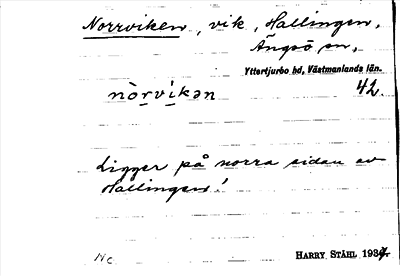 Norrviken, vik, Hallingen,
Ängsö sn,
Yttertjurbo hd, Västmanlands län.
nòrvìkən 42.
Ligger på norra sidan av
Hallingen!
Nc HARRY STÅHL 1937.